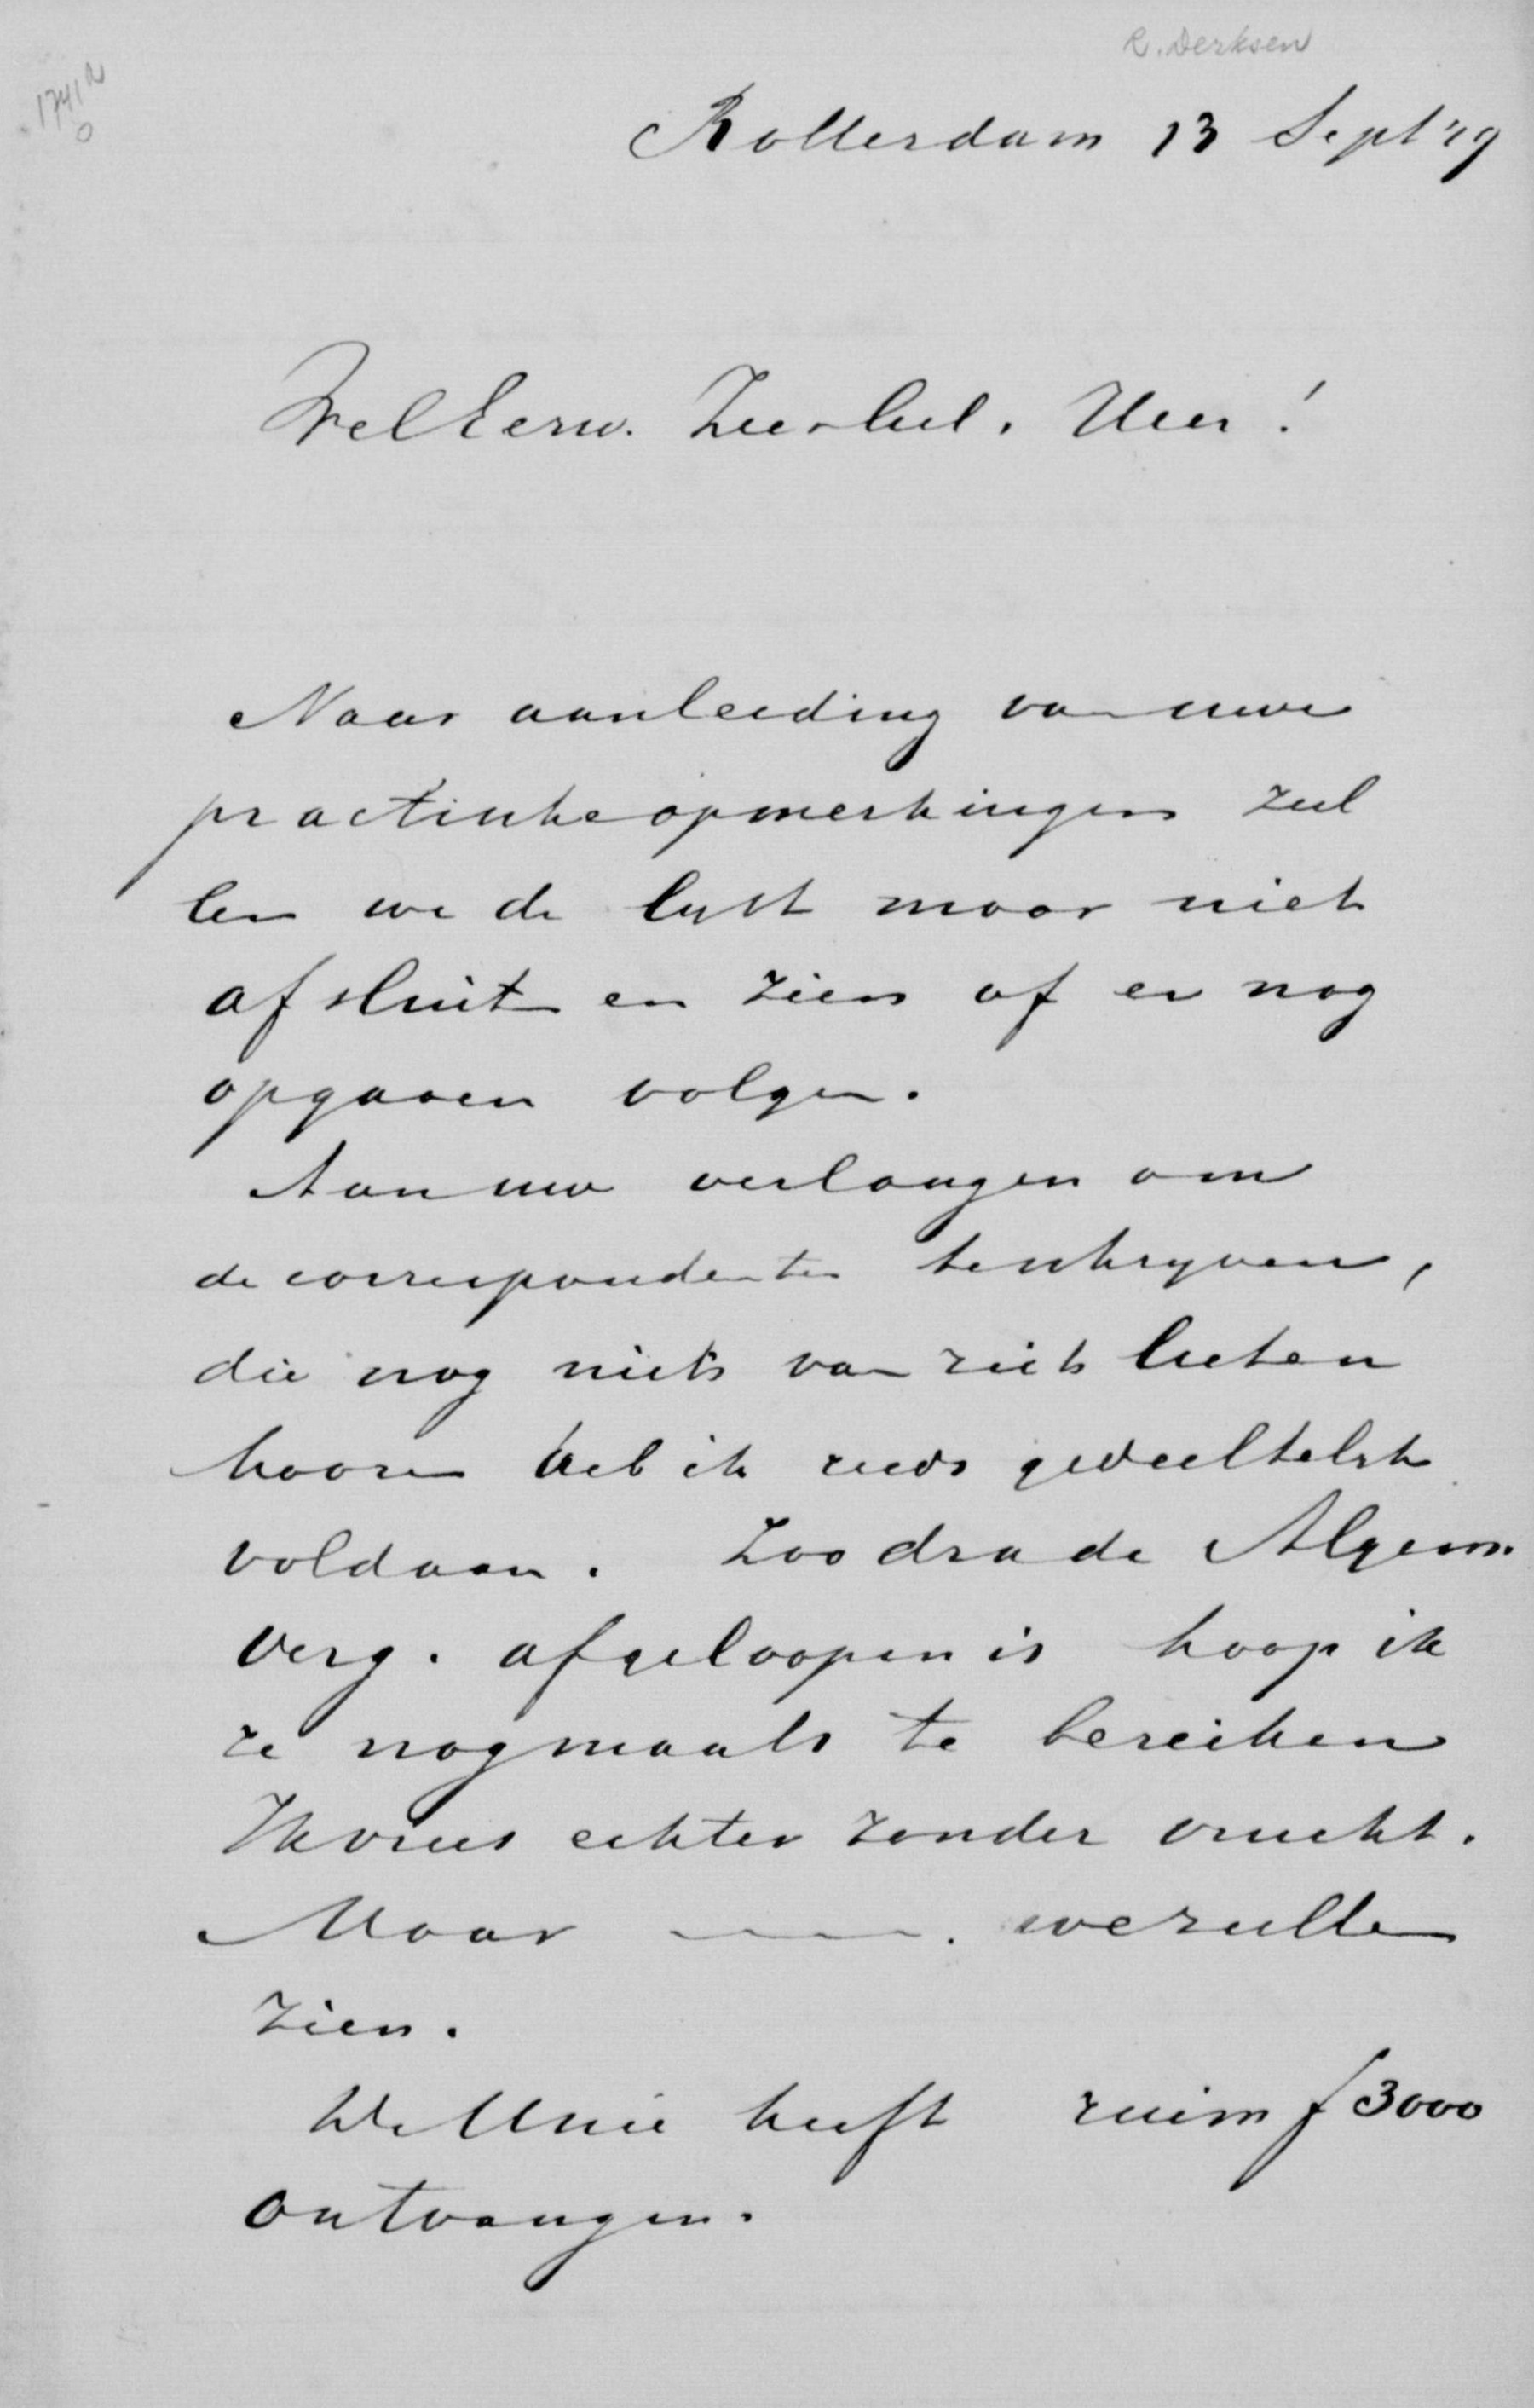 R. Derksen
1741a
0
Rotterdam 13 Sept '79
WelEerw. Zeer Gel. Heer!
Naar aanleiding van uwe
practische opmerkingen zul
len we de lijst maar niet
afsluiten en zien of er nog
opgaven volgen.
Aan uw verlangen om
de correspondenten te schrijven,
die nog niets van zich lieten
hooren heb ik reeds gedeeltelijk
voldaan. Zoodra de Algem.
Verg. afgeloopen is hoop ik
ze nogmaals te bereiken
Ik vrees echter zonder vrucht.
Maar ——. we zullen
zien.
De Unie heeft ruim f 3000
ontvangen.